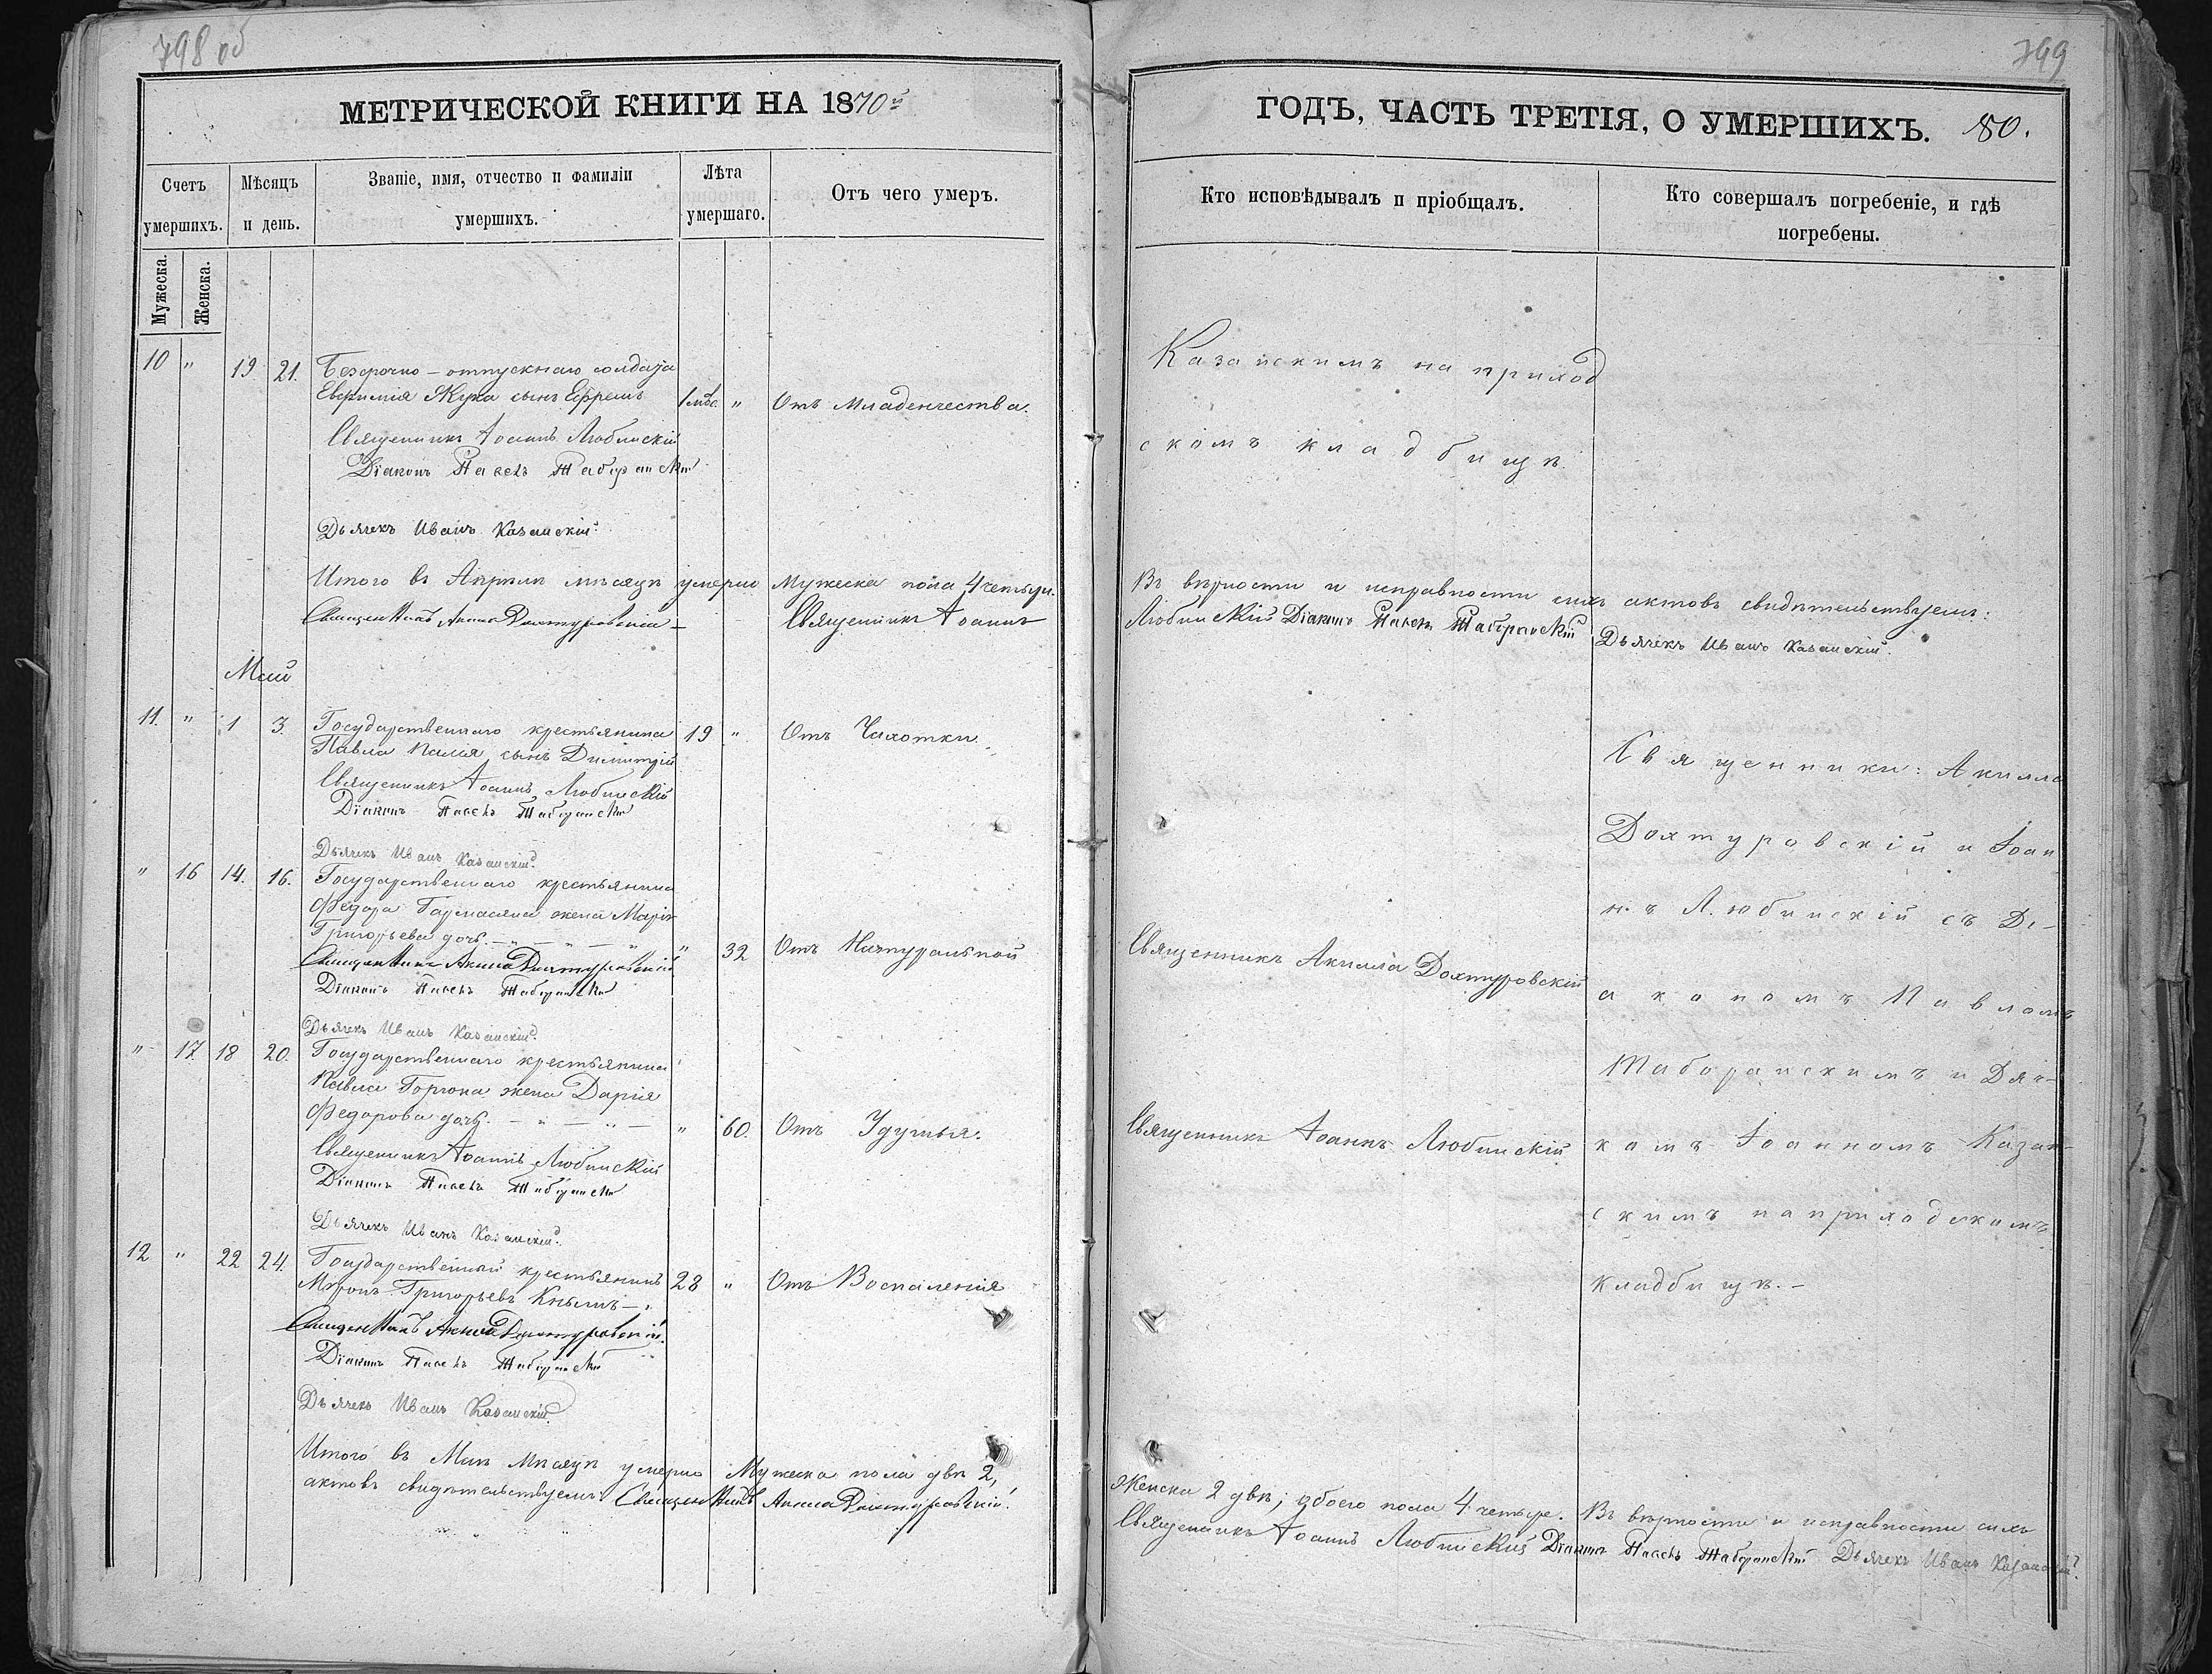 798 об
МЕТРИЧЕСКОЙ КНИГИ НА 1870й
Счетъ умершихъ.
Мѣсяцъ и день.
Званіе, имя, отчество и фамиліи
умершихъ.
Лѣта
умершаго.
Отъ чего умеръ.
Мужеска.
Женска.
10 " 19 21. Безсрочно-отпускнаго солдата
Евфимія Жука сынъ Ефремъ 1 мѣс. " Отъ Младенчества.
Священникъ Іоаннъ Любинскій
Діаконъ Павелъ Таборанскій
Дьячекъ Иванъ Казанскій
Итого въ Апрѣлѣ мѣсяцѣ умерло Мужеска пола 4 четыре.
Священникъ Акила Дохтуровскій Священникъ Іоаннъ
Май
11. " 1 3. Государственнаго крестьянина 19 " Отъ Чахотки.
Павла сынъ Димитрій
Священникъ Іоаннъ Любинскій
Діаконъ Павелъ Таборанскій
Дьячекъ Иванъ Казанскій
" 16 14. 16. Государственнаго крестьянина
Федора жена Марія
Григорьева дочь. " 32 Отъ Натуральной
Священникъ Акила Дохтуровскій
Діаконъ Павелъ Таборанскій
Дьячекъ Иванъ Казанскій
" 17. 18 20. Государственнаго крестьянина
Павла жена Дарія
Федорова дочь. " 60. Отъ Удушья.
Священникъ Іоаннъ Любинскій
Діаконъ Павелъ Таборанскій
Дьячекъ Иванъ Казанскій
12 " 22 24. Государственный крестьянинъ 28 " Отъ Воспаленія
Миронъ Григорьевъ
Священникъ Акила Дохтуровскій.
Діаконъ Павелъ Таборанскій
Дьячекъ Иванъ Казанскій
Итого въ Маѣ Мѣсяцѣ умерло Мужеска пола двѣ 2,
актовъ свидѣтельствуемъ: Священникъ Акила Дохтуровскій.
799
ГОДЪ, ЧАСТЬ ТРЕТІЯ, О УМЕРШИХЪ. 180.
Кто исповѣдывалъ и пріобщалъ.
Кто совершалъ погребеніе, и гдѣ
погребены.
Казанскимъ на приход
скомъ кладбищѣ.
Въ вѣрности и исправности сихъ актовъ свидѣтельствуемъ:
Любинскій Діаконъ Павелъ Таборанскій Дьячекъ Иванъ Казанскій.
Священники: Акилла
Дохтуровскій и Іоан
нъ Любинскій съ Ді-
Священникъ Акилла Дохтуровскій
акономъ Павломъ
Таборанскимъ и Дьяч-
Священникъ Іоаннъ Любинскій
комъ Іоанномъ Казан-
скимъ на приходскомъ
кладбищѣ.-
Женска 2 двѣ, обоего пола 4 четыре. Въ вѣрности и исправности сихъ
Священникъ Іоаннъ Любинскій Діаконъ Павелъ Таборанскій Дьячекъ Иванъ Казанскій.